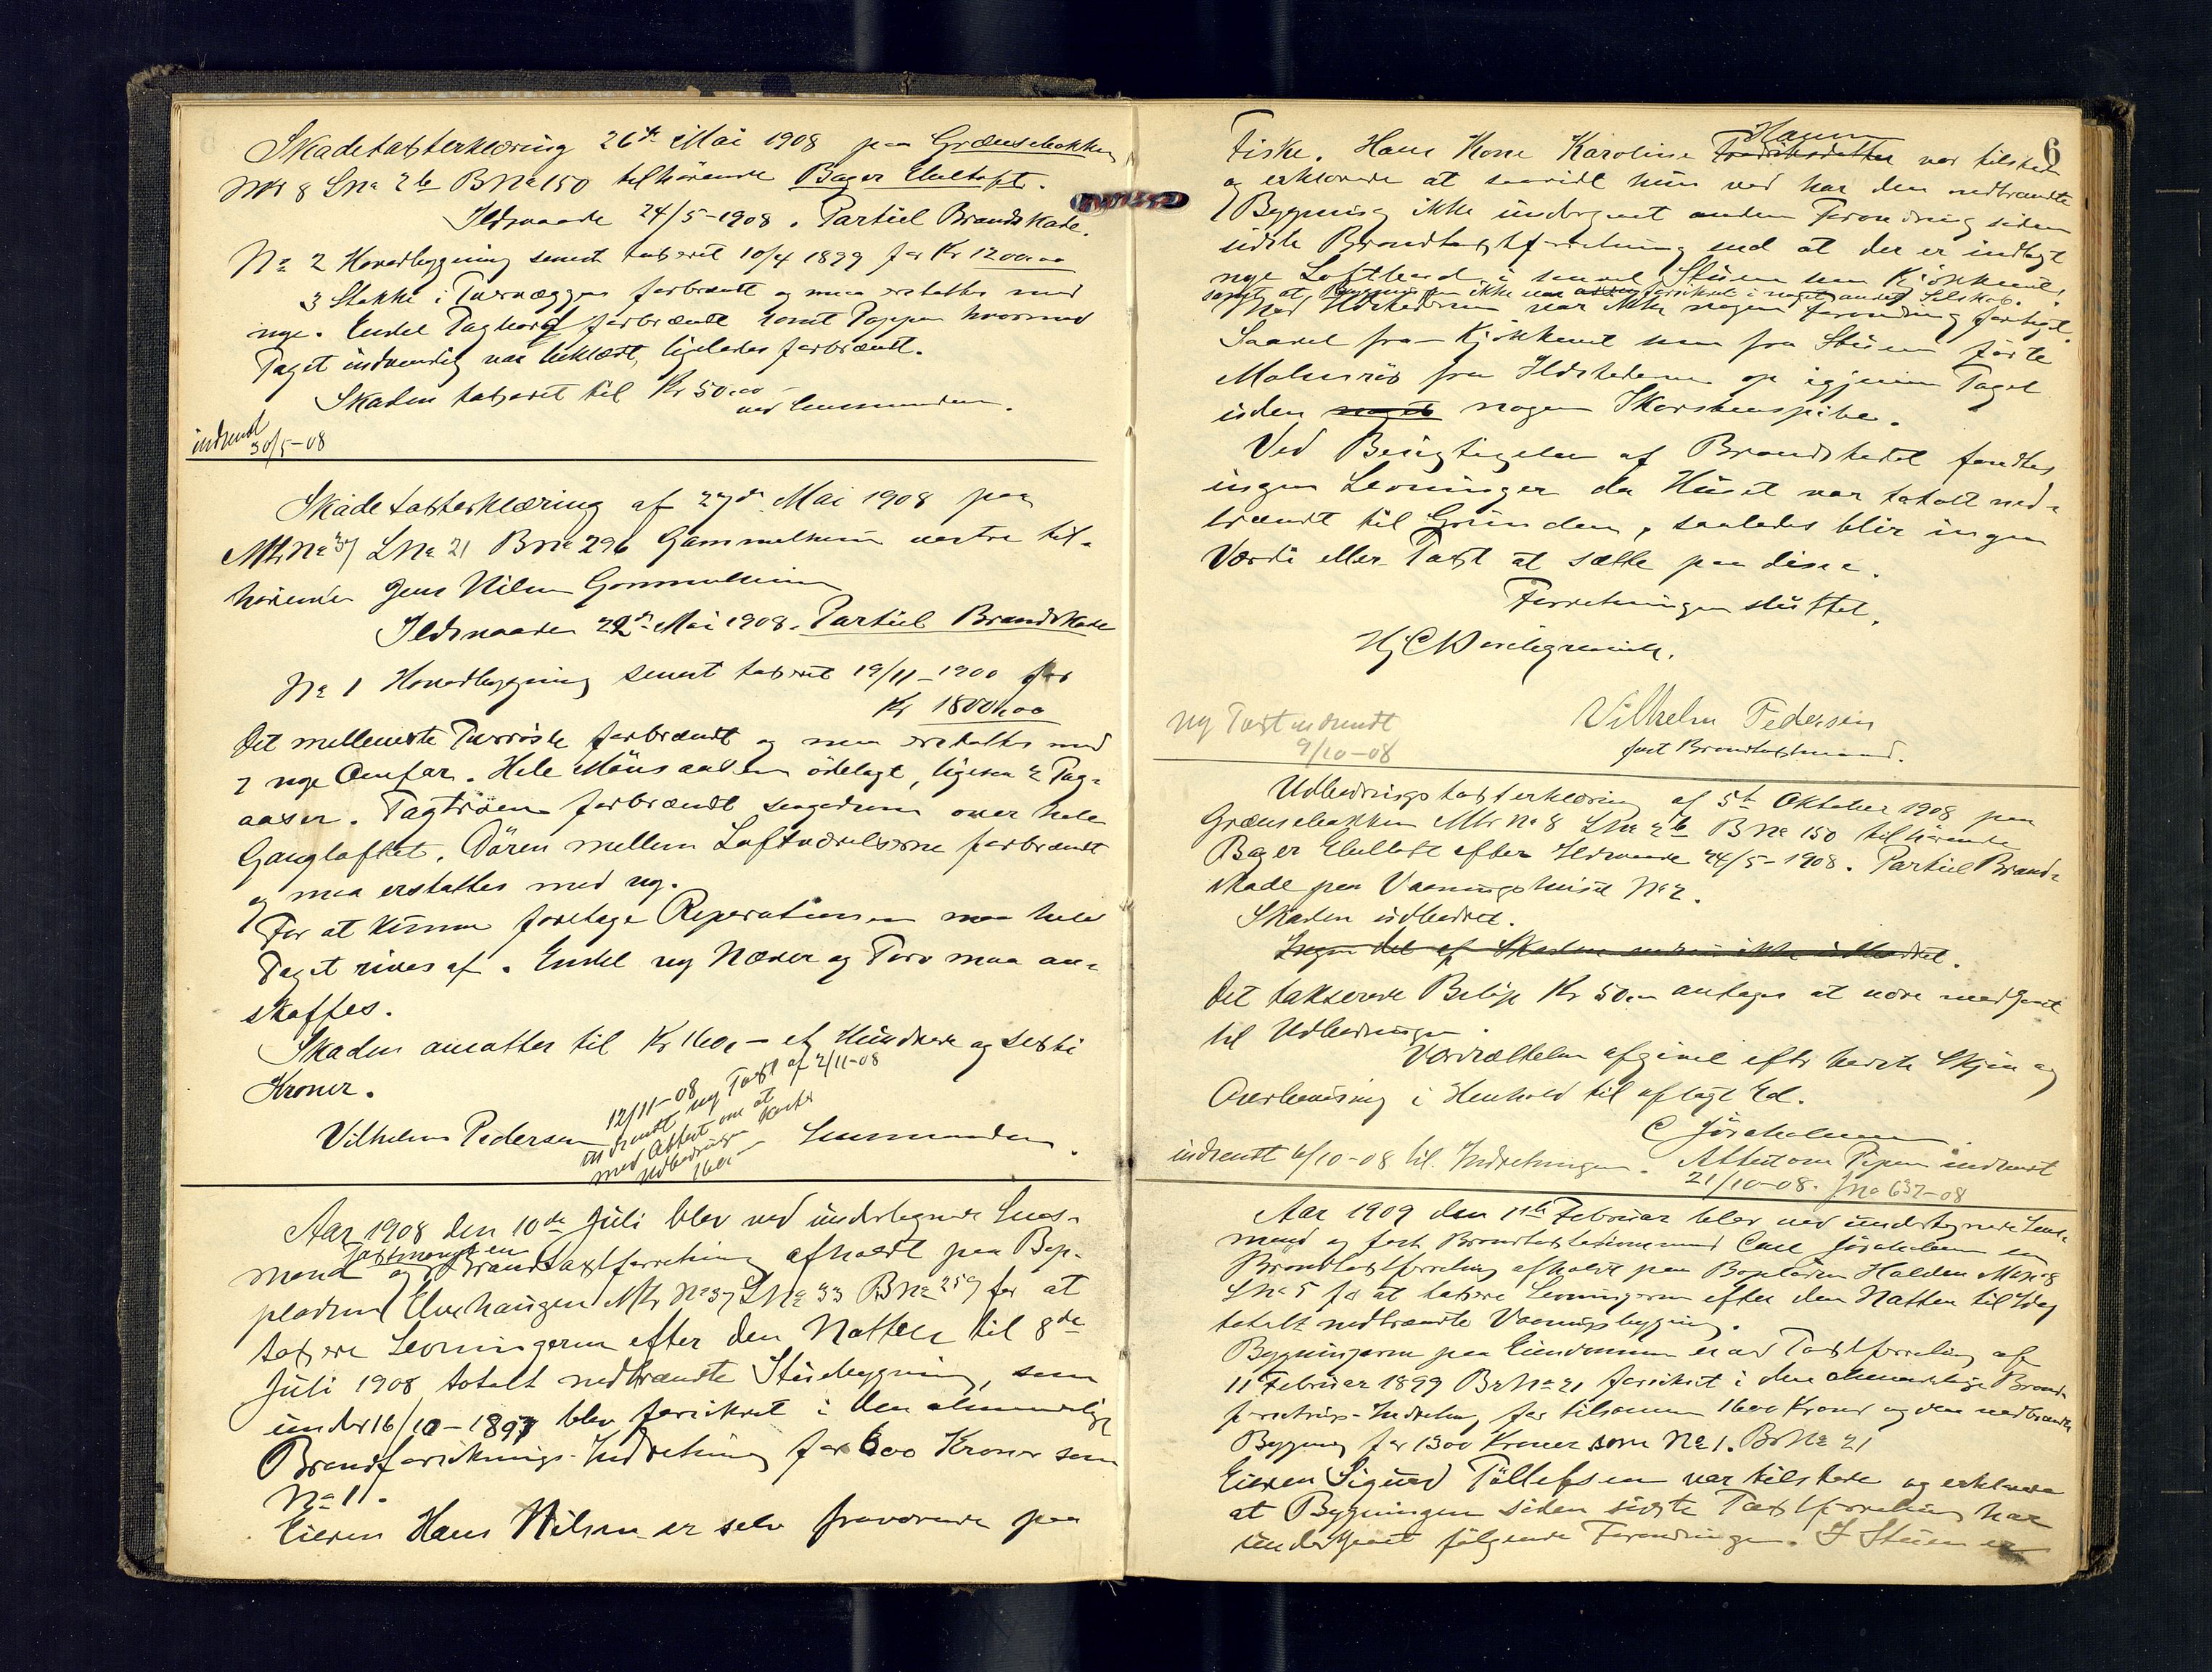 Skadetaxterklæring 26de Mai 1908 paa Grænsebakken
Mtr 8 LNo 2b BNo 150 tilhörende Bager Ebeltoft.
Ildsvaade 24/5-1908. Partiel Brandskade.
No 2 Hovedbygning senest taxeret 10/4 1899 for Kr 1200.00
3 Stokke i Tvervæggen forbrændt og maa erstattes med
nye. Endel Tagbord forbrændt samt Pappen hvormed
Taget indvendig var beklædt, ligeledes forbrændt.
Skaden taxeret til Kr 50.00 –
ved Lensmanden.
indsendt
30/5-08
Skadetaxterklæring af 27de Mai 1908 paa
Mtr No 37 LNo 21 BNo 296 Gammelheim vestre til-
hörende Jens Nilsen Gammelheim
Ildsvaaden 22de Mai 1908. Partiel Brandskade
No 1 Hovedbygning senest taxeret 19/11-1900 for
Kr 1800.00
Det mellemste Tverröste forbrændt og maa erstattes med
7 nye Omfar. Hele Mönsaasen ödelagt, ligesaa 2 Tag-
aaser. Tagtröen forbrændt sagedrum over hele
Gangloftet. Dören mellem Loftværelserne forbrændt
og maa erstattes med ny.
For at kunne foretage Reparationen maa hele
Taget rives af. Endel ny Næver og Torv maa an-
skaffes.
Skaden ansættes til Kr 160,- et Hundrede og sexti
Kroner.
12/11-08
indsendt ny Taxt af 2/11-08
med Attest om at
Udbedringen koster
160,-
Vilhelm Pedersen
Lensmanden.
Aar 1908 den 10de Juli blev ved undertegnede Lens-
Taxtmænd en
mand og Brandtaxtforretning afholdt paa Bop-
pladsen Elvehaugen Mtr No 37 LNo 33 BNo 259 for at
taxere Levningerne efter den Natten til 8de
Juli 1908 totalt nedbrændte Stuebygning, som
under 16/10-1897 blev forsikret i den almindelige
Brandforsiknings-Indretning for 600 Kroner som
No 1.
Eieren Hans Nilsen er selv fraværende paa
6
Fiske. Hans Kone Karoline Fredriksdatter Hagen var tilstede
og erklærede at saavidt hun ved har den nedbrændte
Bygning ikke undergaaet anden Forandring siden
sidste Brandtaxtforretning end at der er indlagt
nye Loftbord i saavel Stuen som Kjökkenet,
samt at Bygningen ikke var forsikret i noget andet Selskab.
Ved Ildstederne var ikke nogen Forandring foretaget.
Saavel fra Kjökkenet som fra Stuen förte
Malmrör fra Ildstederne op igjennem Taget
uden noget nogen Skorstenspibe.
Ved Besigtigelsen af Brandstedet fandtes
ingen Levninger da Huset var totalt ned-
brændt til Grunden, saaledes blir ingen
Værdi eller Taxt at sætte paa disse.
Forretningen sluttet.
Vilhelm Pedersen
fast Brandtaxtmand.
ny Taxt indsendt
9/10-08
Udbedringstaxterklæring af 5te Oktober 1908 paa
Grænsebakken Mtr No 8 LNo 2b BNo 150 tilhörende
Bager Ebeltoft efter Ildsvaade 24/5-1908. Partiel Brand-
skade paa Vaaningshuset No 2.
Skaden udbedret.
Ingen del af Skaden endnu ikke udbedret.
Det takserede Belöp Kr 50.00 antages at være medgaaet
til Udbedringen.
Værdsættelsen afgivet efter bedste Skjön og
Overbevisning i Henhold til aflagt Ed.
indsendt 6/10-08 til Indretningen. Attest om Pipen indsendt
21/10-08. Jno 637-08
Aar 1909 den 11te Februar blev ved undertegnede Lens-
mand og fast Brandtaxtationsmand Carl en
Brandtaxtforretning afholdt paa Bopladsen Halden Mno 8
LNo 5 for at taxere Levningerne efter den Natten til Idag
totalt nedbrændte Vaaningsbygning.
Bygningerne paa Eiendommen er ved Taxtforretning af
11 Februar 1899 BrNo 21 forsikret i den almindelige Brand-
forsikrings-Indretning for tilsammen 1600 Kroner og den nedbrændte
Bygning for 1300 Kroner som No 1. BrNo 21
Eieren Sigurd Töllefsen var tilstede og erklærede
at Bygningen siden sidste Taxtforretning har
undergaaet fölgende Forandringer. I Stuen er